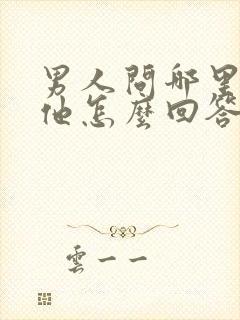 男人問哪里
他怎麼回答
雲一一